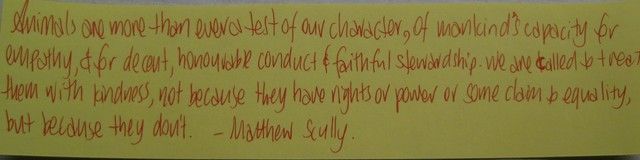 Animals are more than ever a test of our character, of mankind's capacity for
empathy, & for decent, honourable conduct & faithful stewardship. We are called to treat
them with kindness, not because they have rights or power or some claim to equality,
but because they don't. - Matthew Scully.